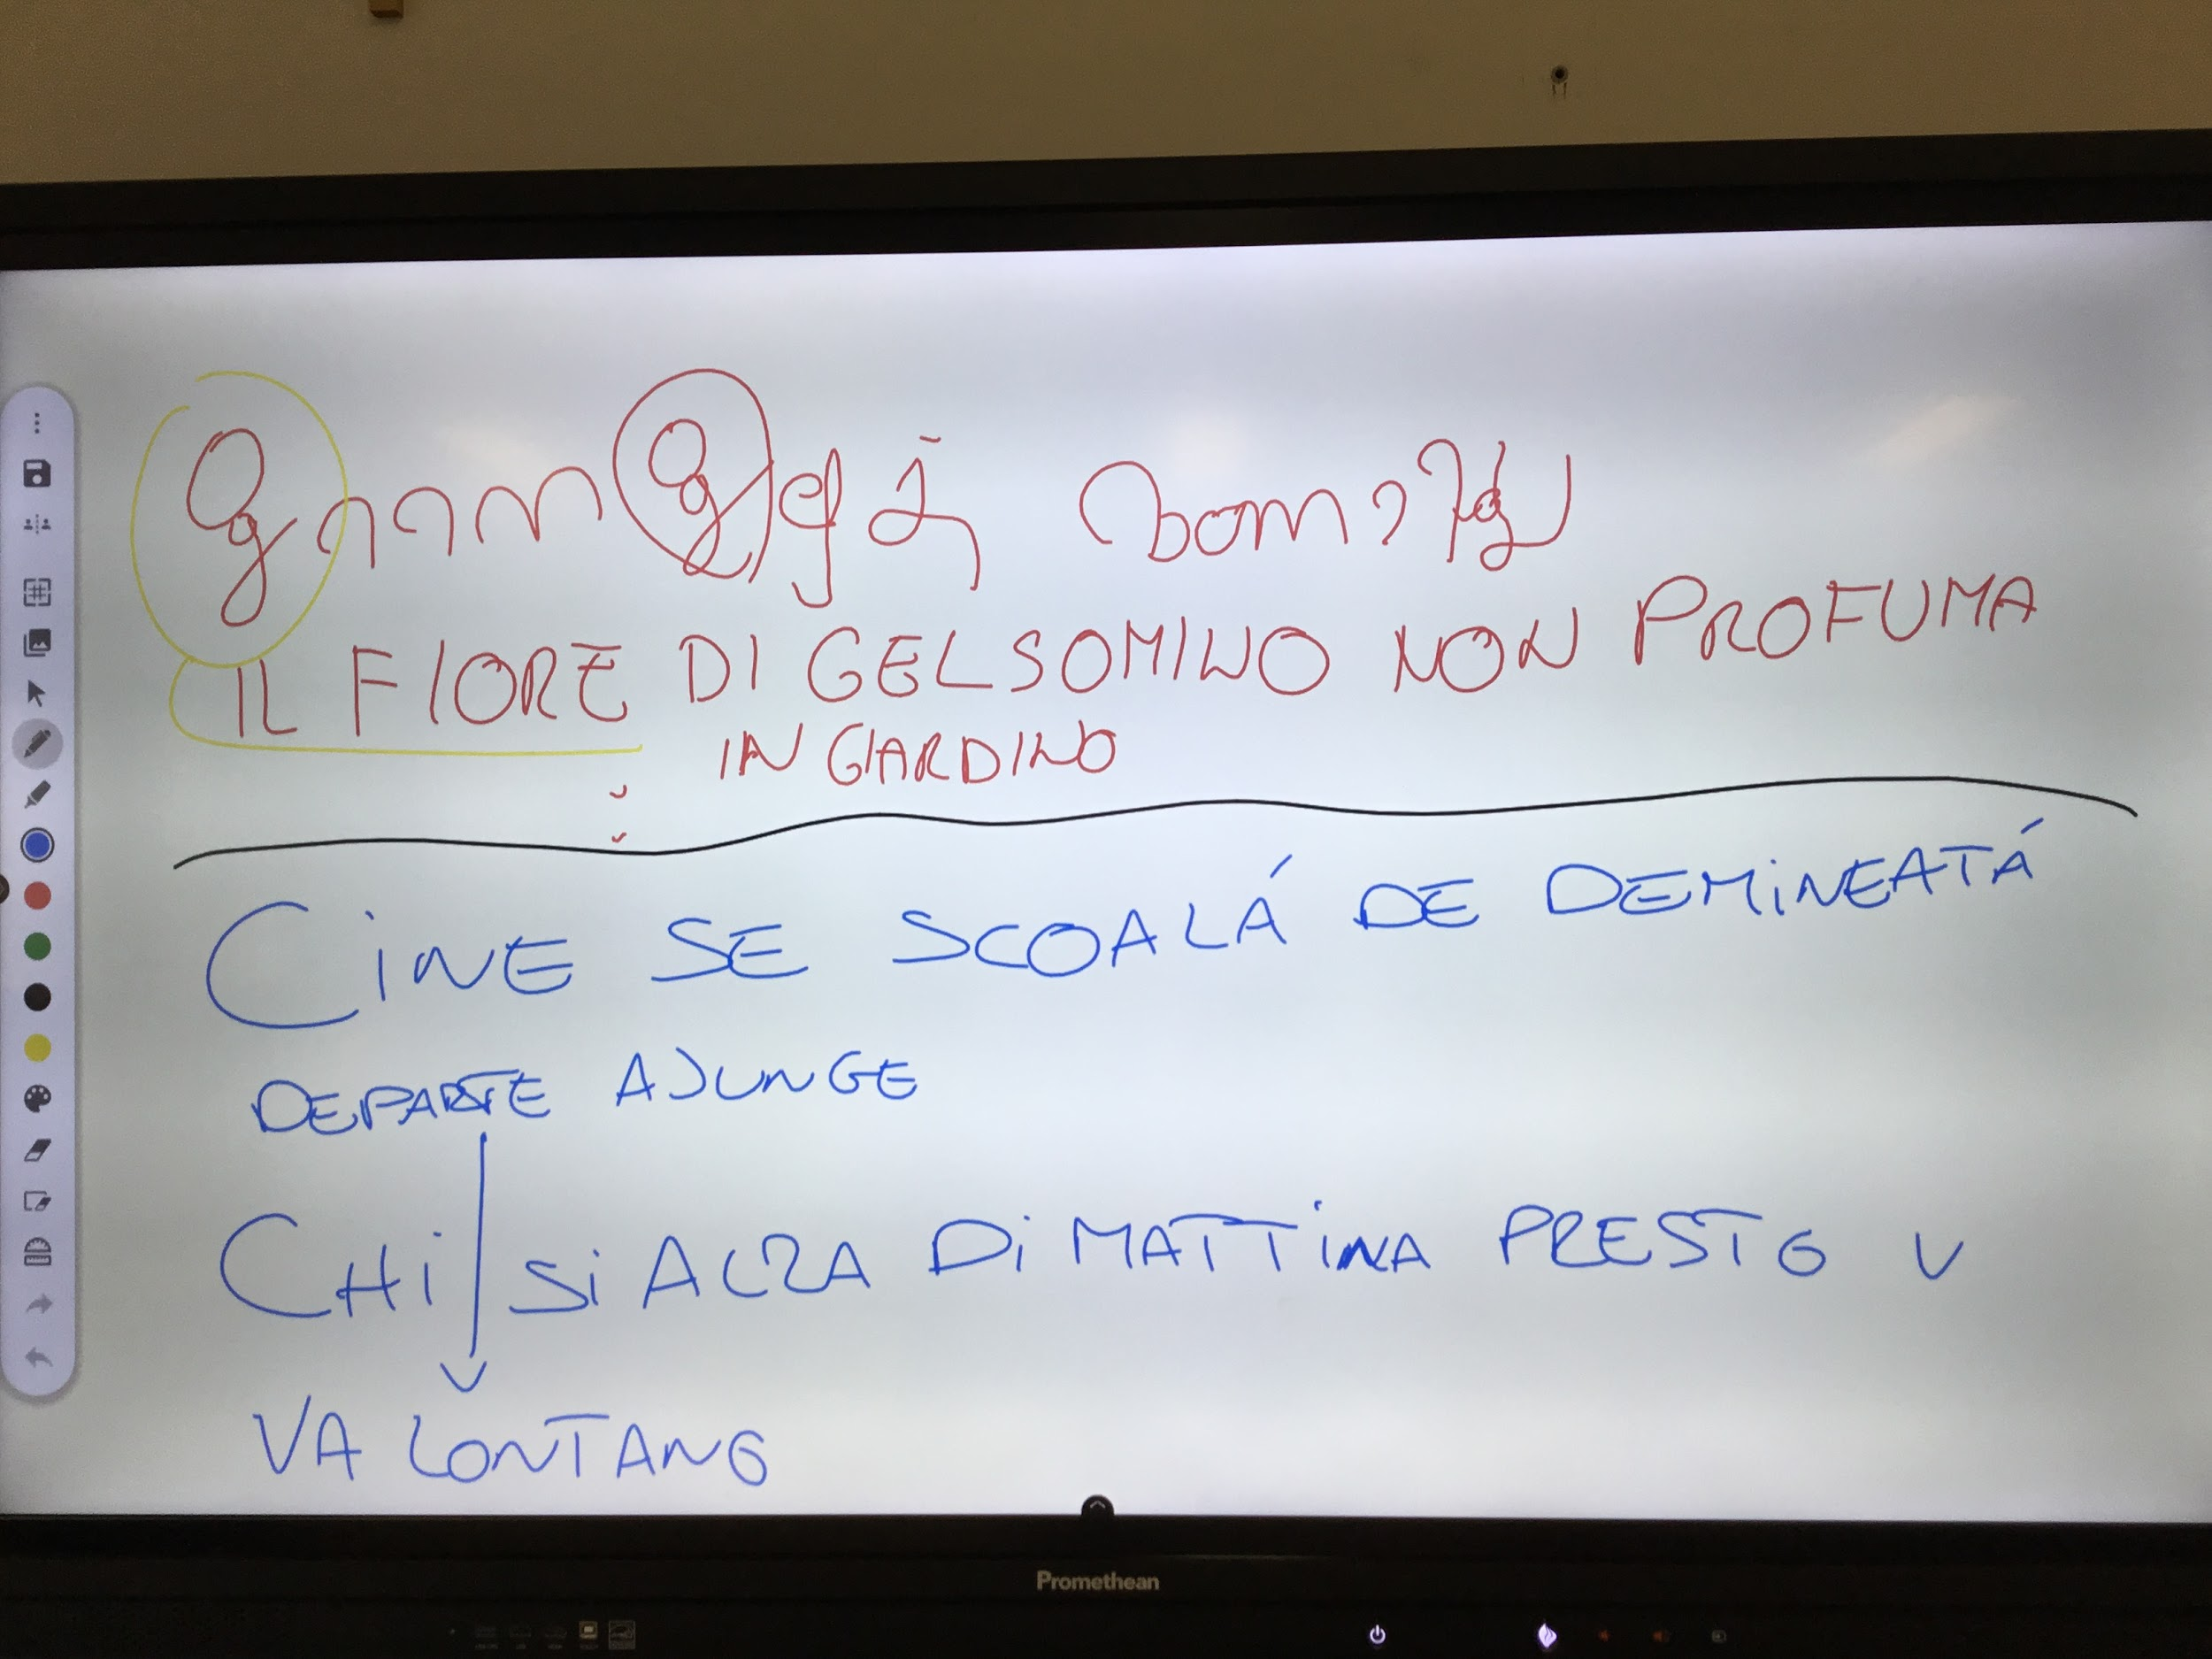 IL FIORE DI GELSOMINO NON PROFUMA
IN GIARDINO
CINE SE SCOALÁ DE DEMINEATÁ
DEPARTE AJUNGE
CHI SI ALZA DI MATTINA PRESTO V
VA LONTANO
Promethean